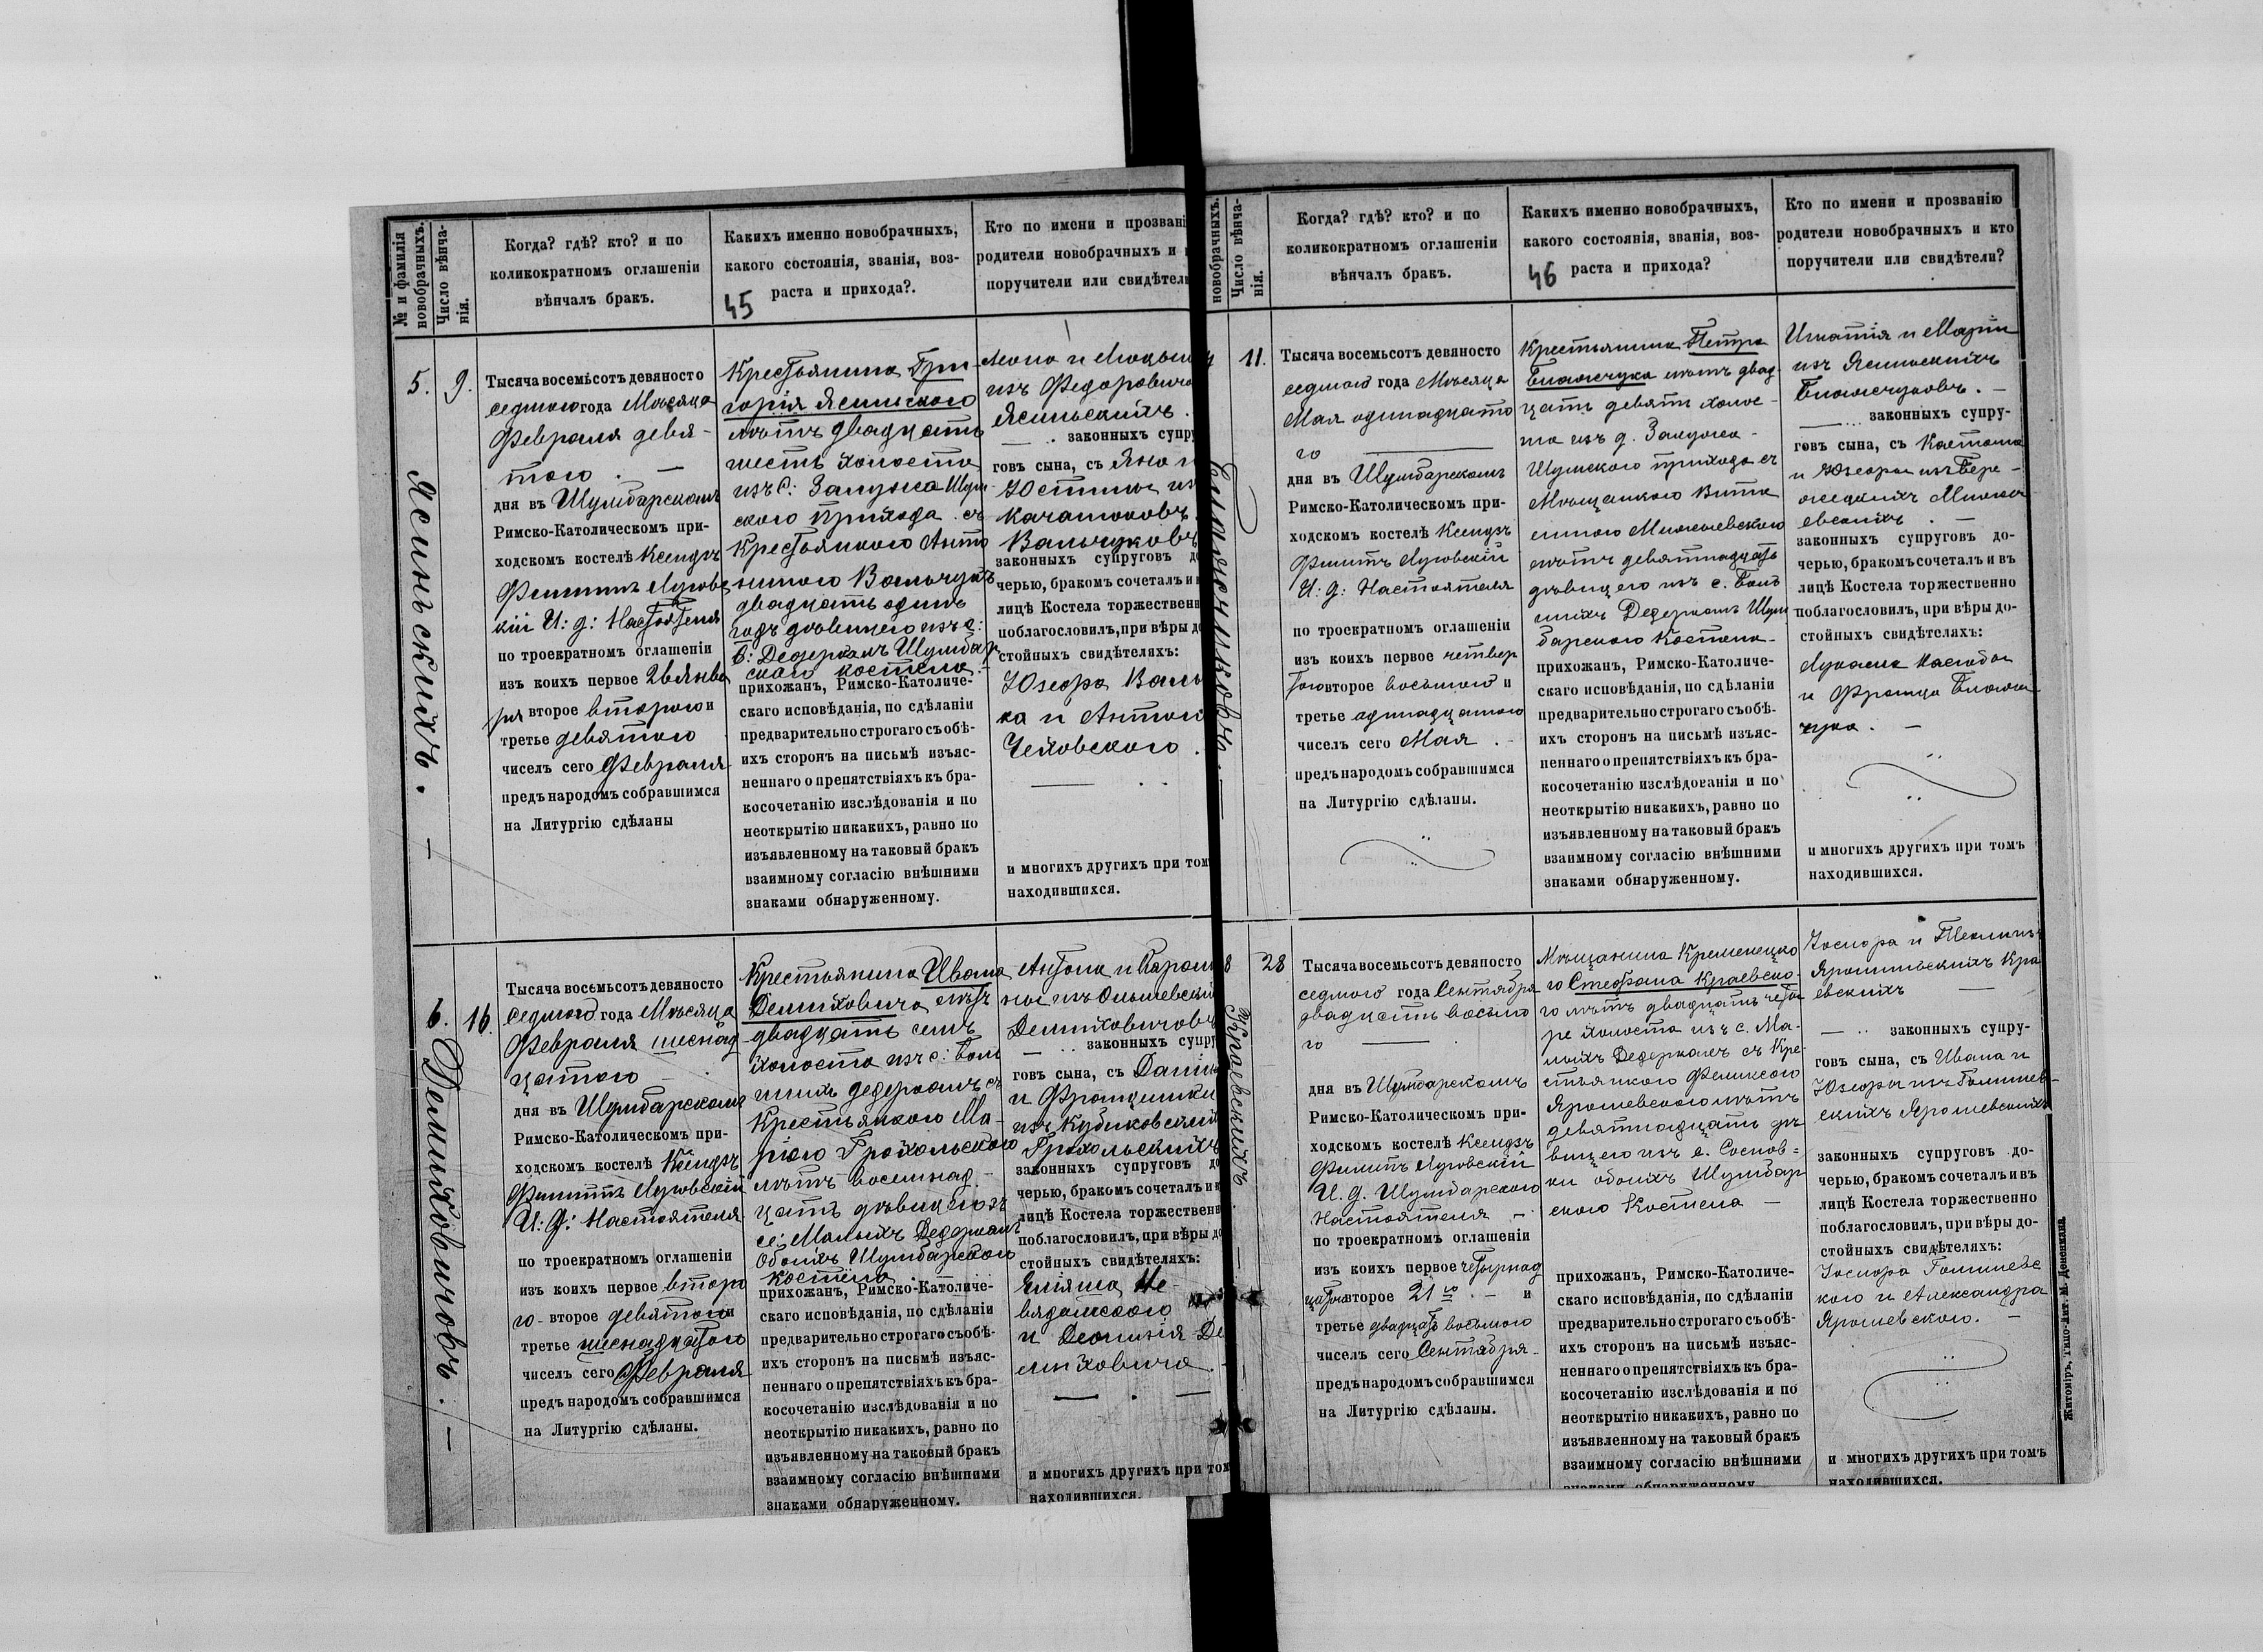 № и фамилія
новобрачныхъ.
Число вѣнча-
нія.
Когда? гдѣ? кто? и по
коликократномъ оглашеніи
вѣнчалъ бракъ.
Какихъ именно новобрачныхъ,
какого состоянія, званія, воз-
раста и прихода?.
45
Кто по имени и прозвані
родители новобрачныхъ и
поручители или свидѣтел
5.
9.
Ясинскихъ. —
Тысяча восемьсотъ девяносто
седмого года Мѣсяца
Февраля девя-
того. —
дня въ Шумбарскомъ
Римско-Католическомъ при-
ходскомъ костелѣ Ксендзъ
Филиппъ Лузовс
кій И: д: Настоятеля
по троекратномъ оглашеніи
изъ коихъ первое 26 Янва
ря второе второго и
третье девятого
числъ сего Февраля
предъ народомъ собравшимся
на Литургію сдѣланы
Крестьянина Гри-
горія Ясинского
лѣтъ двадцать
шесть холоста
изъ С: Залужа Шум
ского прихода. съ
Крестьянкою Анто
ниною Вальчукъ
двадцать одинъ
годъ дѣвицею изъ с:
Б: Дедеркалъ Шумбар
ского костела.
прихожанъ, Римско-Католиче-
скаго исповѣданія, по сдѣланіи
предварительно строгаго съ обѣ-
ихъ сторонъ на письмѣ изъяс-
неннаго о препятствіяхъ къ бра-
косочетанію изслѣдованія и по
неоткрытію никакихъ, равно по
изъявленному на таковый бракъ
взаимному согласію внѣшними
знаками обнаруженному.
изъ Федорович
Ясинскихъ.
— .. законныхъ супру
говъ сына, съ Яна и
Юстины из
Качатюковъ
Вальчуковъ
законныхъ супруговъ д
черью, бракомъ сочеталъ и
лицѣ Костела торжествен
поблагословилъ, при вѣры д
стойныхъ свидѣтеляхъ:
Юзефа Валь
ка и Антон
Чеховского.
и многихъ другихъ при том
находившихся.
6.
16.
Демиховичовъ. —
Тысяча восемьсотъ девяносто
седмого года Мѣсяца
Февраля шеснад
цатого —
дня въ Шумбарскомъ
Римско-Католическомъ при-
ходскомъ костелѣ Ксендзъ
Филиппъ Лузовскій
И: д: Настоятеля
по троекратномъ оглашеніи
изъ коихъ первое второ
го - второе девятого и
третье шеснадцатого
числъ сего Февраля
предъ народомъ собравшимся
на Литургію сдѣланы.
Крестьянина Ивана
Демиховича лѣтъ
двадцать семь
холоста изъ с: Боль
шихъ Дедеркалъ съ
Крестьянкою Ма-
ріею Грохольскою
лѣтъ восемнад-
цать дѣвицею изъ
с: Малыхъ Дедеркалъ
обоихъ Шумбарского
костела.
прихожанъ, Римско-Католиче-
скаго исповѣданія, по сдѣланіи
предварительно строгаго съ обѣ-
ихъ сторонъ на письмѣ изъяс-
неннаго о препятствіяхъ къ бра-
косочетанію изслѣдованія и по
неоткрытію никакихъ, равно по
изъявленному на таковый бракъ
взаимному согласію внѣшними
знаками обнаруженному.
Антона и Кароли
ны изъ Ольшевски
Демиховичовъ
— .. законныхъ супру
говъ сына, съ Дани
и Францишки
изъ Кубиковски
Грохольскихъ
законныхъ супруговъ до
черью, бракомъ сочеталъ и в
лицѣ Костела торжествен
поблагословилъ, при вѣры до
стойныхъ свидѣтеляхъ:
Еліяша Не-
вядомского
и Деонизія Де
миховича.
и многихъ другихъ при том
находившихся.
новобрачныхъ.
Число вѣнча-
нія.
Когда? гдѣ? кто? и по
коликократномъ оглашеніи
вѣнчалъ бракъ.
Какихъ именно новобрачныхъ,
какого состоянія, званія, воз-
46 раста и прихода?
Кто по имени и прозванію
родители новобрачныхъ и кто
поручители или свидѣтели?
11.
Тысяча восемьсотъ девяносто
седмого года Мѣсяца
Мая одинадцато
го
дня въ Шумбарскомъ
Римско-Католическомъ при-
ходскомъ костелѣ Ксендзъ
Филиппъ Лузовскій
И: д: Настоятеля
по троекратномъ оглашеніи
изъ коихъ первое четвер
того второе восьмого и
третье одинадцатого
числъ сего Мая. -
предъ народомъ собравшимся
на Литургію сдѣланы.
Крестьянина Петра
лѣтъ двад-
цать девять холос-
та изъ д. Залужа -
Шумского прихода съ
Мѣщанкою
лѣтъ девятнадцать
дѣвицею изъ с. Боль
шихъ Дедеркалъ Шум
барского Костела -
прихожанъ, Римско-Католиче-
скаго исповѣданія, по сдѣланіи
предварительно строгаго съ обѣ-
ихъ сторонъ на письмѣ изъяс-
неннаго о препятствіяхъ къ бра-
косочетанію изслѣдованія и по
неоткрытію никакихъ, равно по
изъявленному на таковый бракъ
взаимному согласію внѣшними
знаками обнаруженному.
Игнатія и Маріи
изъ Ясинскихъ
— ... законныхъ супру-
говъ сына, съ
законныхъ супруговъ до-
черью, бракомъ сочеталъ и въ
лицѣ Костела торжественно
поблагословилъ, при вѣры до-
стойныхъ свидѣтеляхъ:
и Франца
чука. -
и многихъ другихъ при томъ
находившихся.
8
28
Краевскихъ
Тысяча восемьсотъ девяносто
седмого года Сентября
двадцать восьмо
го
дня въ Шумбарскомъ
Римско-Католическомъ при-
ходскомъ костелѣ Ксендзъ
Филиппъ Лузовскій
И. д. Шумбарского
Настоятеля -
по троекратномъ оглашеніи
изъ коихъ первое четырнад
цатого второе 21 го . - и
третье двадцать восьмого
числъ сего Сентября-
предъ народомъ собравшимся
на Литургію сдѣланы.
Мѣщанина Кременецко
го Стефана Краевско-
го лѣтъ двадцать четы
ре холоста изъ с. Ма-
лыхъ Дедеркалъ съ Кре-
стьянкою Феликсою
Ярошевскою лѣтъ
девятнадцать дѣ-
вицею изъ с. Соснов-
ки обоихъ Шумбар
ского Костела —
прихожанъ, Римско-Католиче-
скаго исповѣданія, по сдѣланіи
предварительно строгаго съ обѣ-
ихъ сторонъ на письмѣ изъяс-
неннаго о препятствіяхъ къ бра-
косочетанію изслѣдованія и по
неоткрытію никакихъ, равно по
изъявленному на таковый бракъ
взаимному согласію внѣшними
знаками обнаруженному
Іосифа и
Кра
евскихъ
— .. законныхъ супру-
говъ сына, съ Ивана и
Юзефы изъ Голинев-
скихъ Ярошевскихъ
законныхъ супруговъ до-
черью, бракомъ сочеталъ и въ
лицѣ Костела торжественно
поблагословилъ, при вѣры до-
стойныхъ свидѣтеляхъ:
Іосифа Голиневс
кого и Александра
Ярошевского. -
и многихъ другихъ при томъ
находившихся.
Житоміръ, Типо-Лит. М. Дененмана